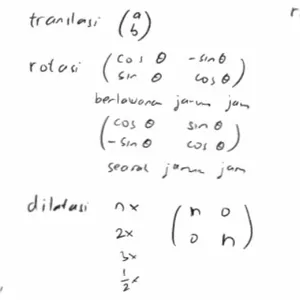 translasi (a
b)
rotasi (cos θ -sin θ
sin θ cos θ)
berlawanan jarum jam
(cos θ sin θ
-sin θ cos θ)
searah jarum jam
dilatasi nx (n 0
0 n)
2x
3x
½x
r